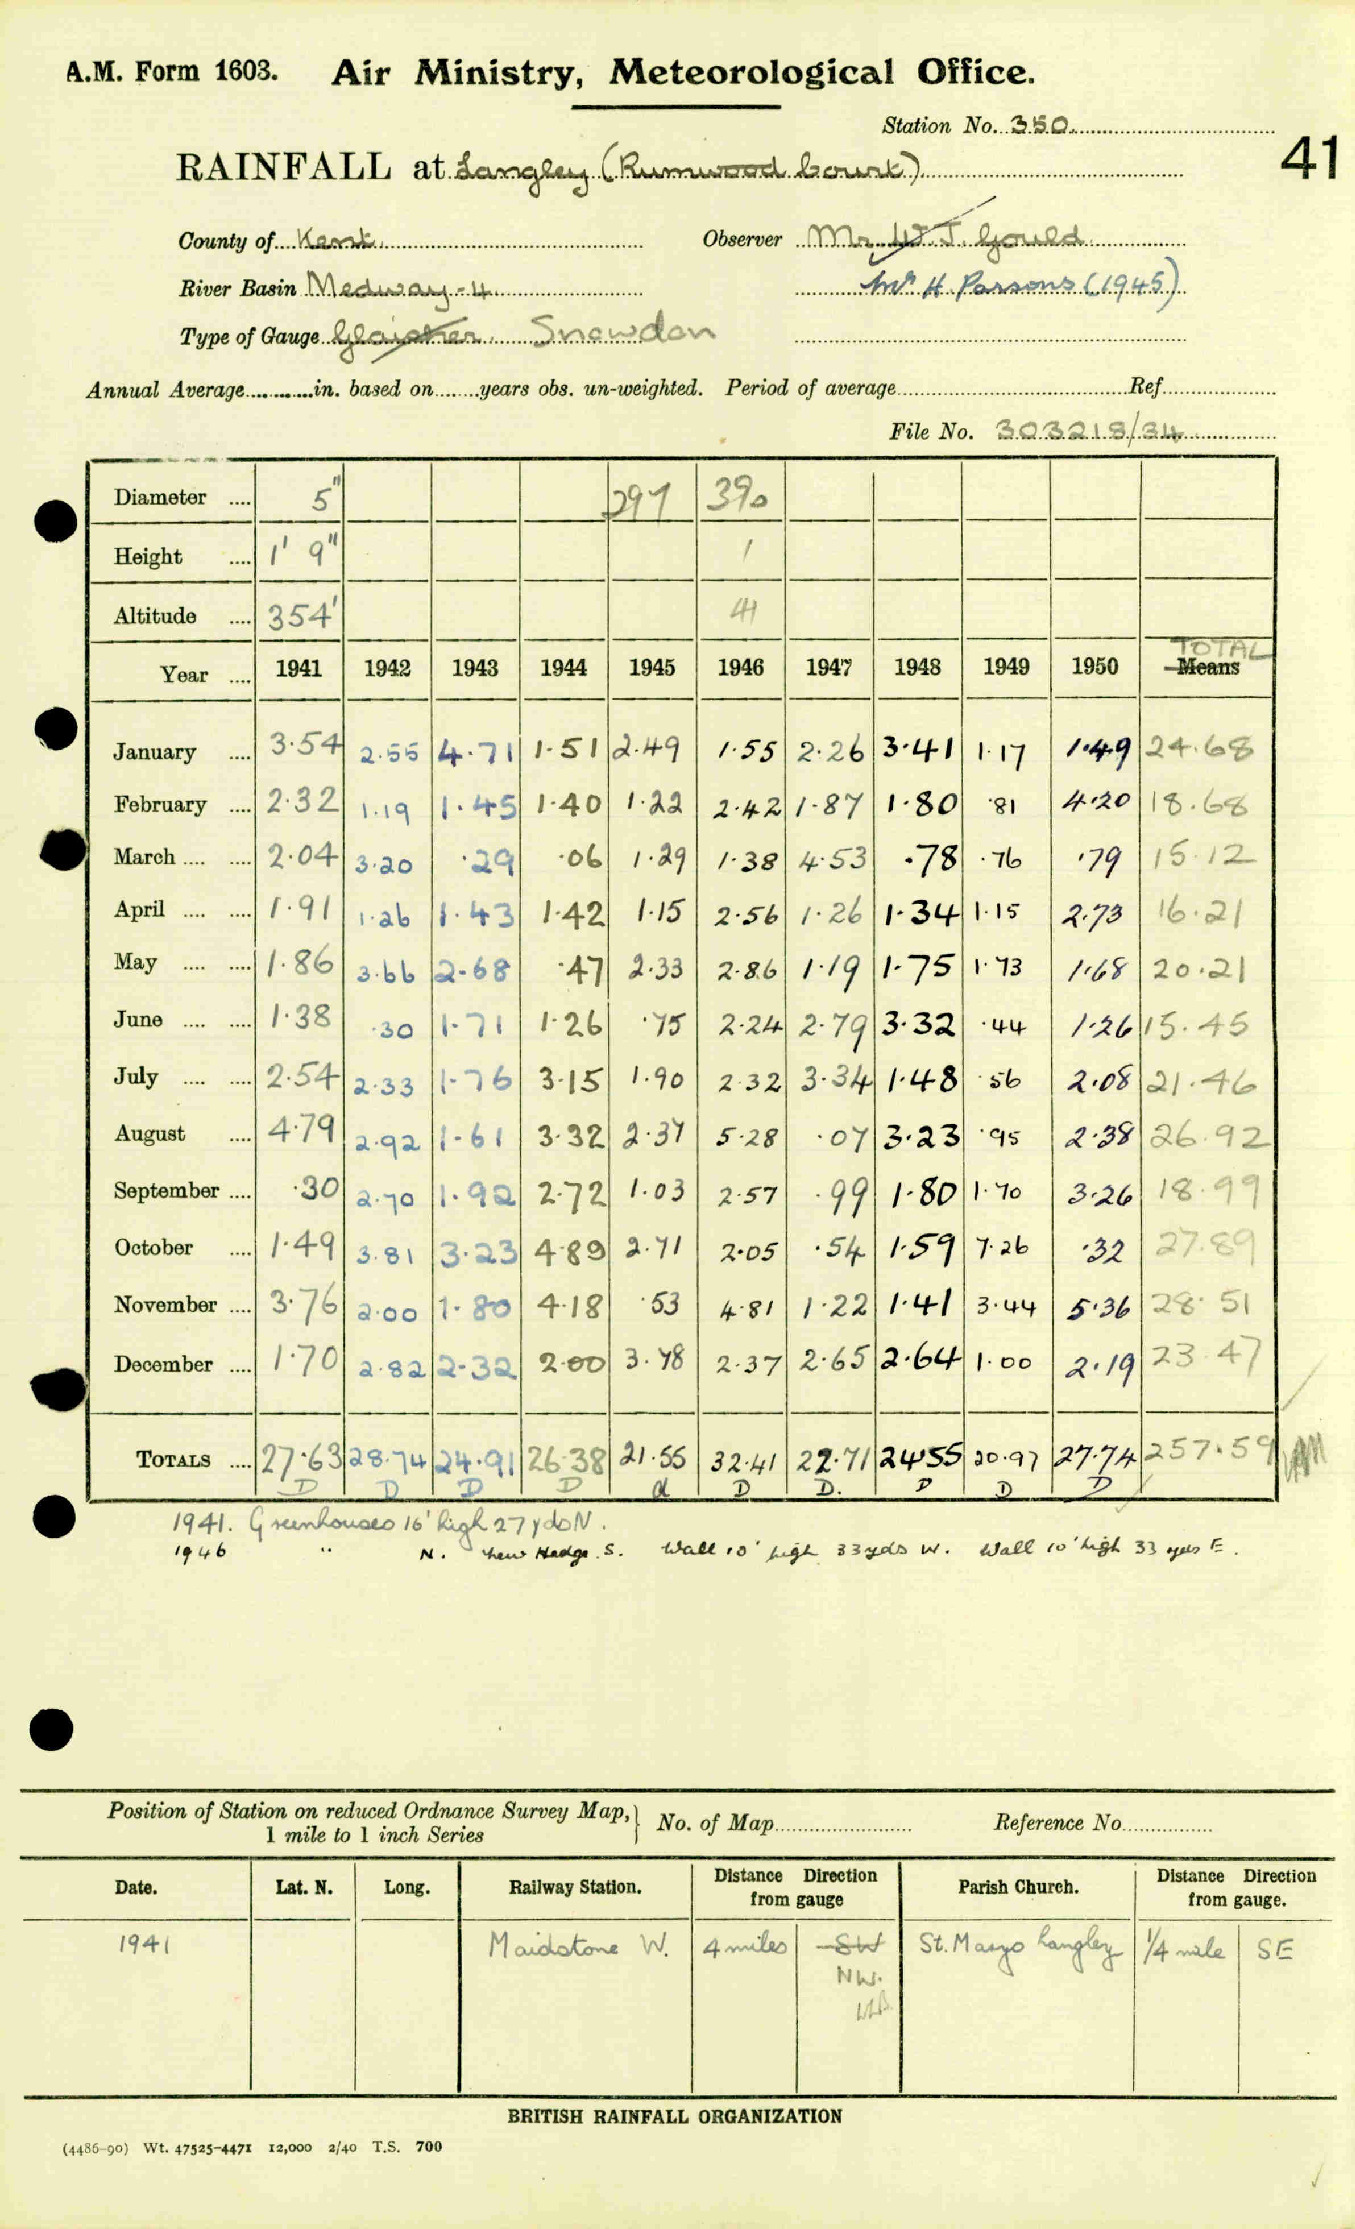 A.M. Form 1603. Air Ministry, Meteorological Office.
Station No. 350
41
RAINFALL at Langley (Rumwood Court)
County of Kent Observer Mr. W. J. Gould
River Basin Medway - 4 Mr H. Parsons (1945)
Type of Gauge Glaisher Snowdon
Annual Average in. based on years obs. un-weighted. Period of average Ref
File No. 303218/34
Diameter 5" 297 390
Height 1' 9" 1
Altitude 354' 41
Year 1941 1942 1943 1944 1945 1946 1947 1948 1949 1950 Means TOTAL
January 3.54 2.55 4.71 1.51 2.49 1.55 2.26 3.41 1.17 1.49 24.68
February 2.32 1.19 1.45 1.40 1.22 2.42 1.87 1.80 .81 4.20 18.68
March 2.04 3.20 .29 .06 1.29 1.38 4.53 .78 .76 .79 15.12
April 1.91 1.26 1.43 1.42 1.15 2.56 1.26 1.34 1.15 2.73 16.21
May 1.86 3.66 2.68 .47 2.33 2.86 1.19 1.75 1.73 1.68 20.21
June 1.38 .30 1.71 1.26 .75 2.24 2.79 3.32 .44 1.26 15.45
July 2.54 2.33 1.76 3.15 1.90 2.32 3.34 1.48 .56 2.08 21.46
August 4.79 2.92 1.61 3.32 2.37 5.28 .07 3.23 .95 2.38 26.92
September .30 2.70 1.92 2.72 1.03 2.57 .99 1.80 1.70 3.26 18.99
October 1.49 3.81 3.23 4.89 2.71 2.05 .54 1.59 7.26 .32 27.89
November 3.76 2.00 1.80 4.18 .53 4.81 1.22 1.41 3.44 5.36 28.51
December 1.70 2.82 2.32 2.00 3.78 2.37 2.65 2.64 1.00 2.19 23.47
TOTALS 27.63 28.74 24.91 26.38 21.55 32.41 22.71 24.55 20.97 27.74 257.59
D D D D d D D. D D D
1941. Greenhouses 16' high 27 yds N.
1946 " N. Hedge S. Wall 10' high 33 yds W. Wall 10' high 33 yds E.
Position of Station on reduced Ordnance Survey Map, 1 mile to 1 inch Series No. of Map Reference No.
Date. Lat. N. Long. Railway Station. Distance Direction from gauge Parish Church. Distance Direction from gauge.
1941 Maidstone W. 4 miles SW St. Marys Langley 1/4 mile SE
NW.
BRITISH RAINFALL ORGANIZATION
(4486-90) Wt. 47525-4471 12,000 2/40 T.S. 700